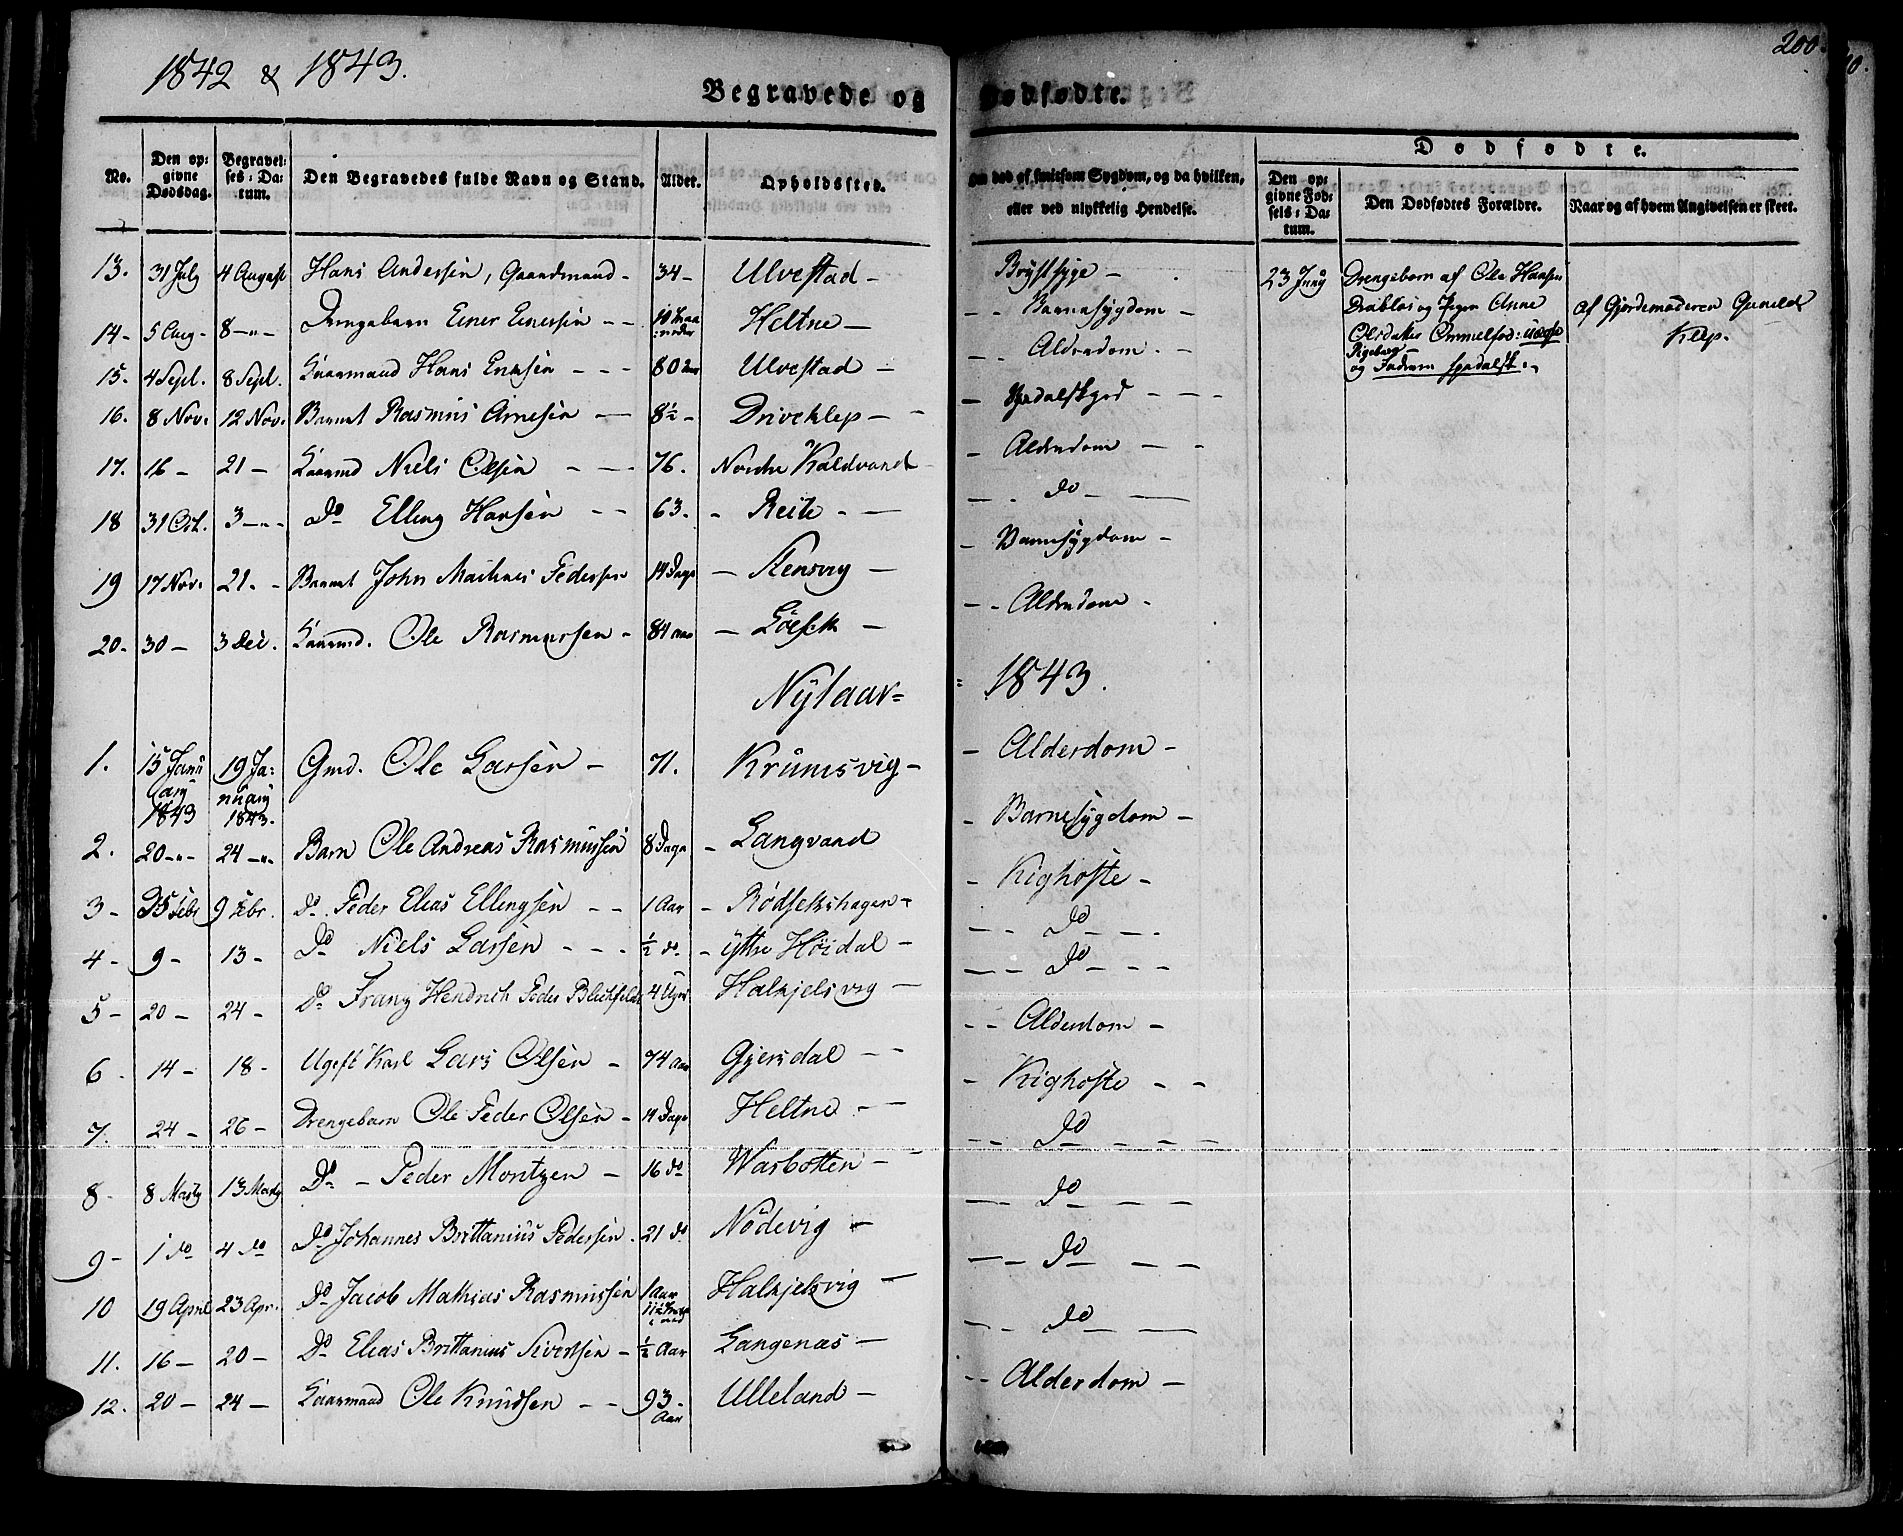 1842 & 1843.
200.
Begravede og Dødfødte.
No.
Den op=
givne
Dødsdag.
Begravel=
ses=Da=
tum.
Den Begravedes fulde Navn og Stand.
Alder.
Opholdssted.
død af smitsom Sygdom, og da hvilken,
eller ved ulykkelig Hendelse.
Dødfødte.
Den op=
givne Fød=
sels=Da=
tum.
Den Dødfødtes Forældre.
Naar og af hvem Angivelsen er skeet.
13. 31 July 4 August Hans Andersen, Gaardmand - 34 - Ulvestad - Brystsyge -
14- 5 Aug- 8 -"- Drengebarn Einer Einersen - - Heltne - - - Barnesygdom -
15. 4 Sept. 8 Sept. Kaarmand Hans - - - 80 Ulvestad - - - Alderdom. -
16. 8 Nov. 12 Nov. Barnet Rasmus Arnesen - 8½ - Driveklep - - - Spedalskhed - - -
17. 16 - 21 - Kaarmd Niels Olsen - - 76. Nordre Kaldvand - Alderdom - -
18 31 Oct. 3 -"- do Elling Hansen - - 63. - Reite - - - - do - -
19 17 Nov. 21. - Barnet John Pedersen 14 Dage - Stensvig - - Barnesygdom -
20. 30 - 3 Dec. Kaarmd. Ole Rasmussen - 84 Aar - - - - Alderdom -
Nytaar = 1843.
1. 15 Janu
ary
1843 19 Ja=
nuary
1843. Gmd. Ole Larsen - 71. Krumsvig - - Alderdom -
2. 20 -"- 24 -"- Barn Ole Andreas Rasmussen 8 Dage - Langvand - Barnesygdom -
3 - 5 Febr 9 Febr. do. Peder Elias Ellingsen - - 1 Aar - Rødsetshagen - - Kighoste -
4 - 9 - 13 - do Niels Larsen - - - ½ do. - Yttre Høidal - - - do - -.
5 - 20 - 24 - do Franz Hendrich Peder 4 Uger Halkjelsvig - - - do - - -
6 - 14 - 18 - Ugift Karl Lars Olsen - 74 Aar Gjersdal - - - - Alderdom -
7. 24 - 26 - Drengebarn Ole Peder Olsen - 14 Dage Heltne - - - Kighoste - -
8 - 8 Marty 13 Marty do - Peder Moritzen - 16 do Wasbotten - - - - do - - -
9 - 1 do 4 do do Johannes Brittanius Pedersen. 21 do Nødevig - - - do - -
10 19 April 23 Apr. do Jacob Mathias Rasmussen 1 Aar Halkjelsvig - - - do - -
11. 16 - 20 - do Elias Brittanius Sivertsen - ½ Aar Langenæs - - - do - -
12. 20 - 24 - Kaarmand Ole Knudsen - - 93
Aar Ulleland - - - Alderdom -
23 Juny Drengebarn af Ole Hansen
Drabløs og Pigen Anne
Olsdatter
og Faderen spedalsk.
af Gjordemoderen Gunild
Klep.